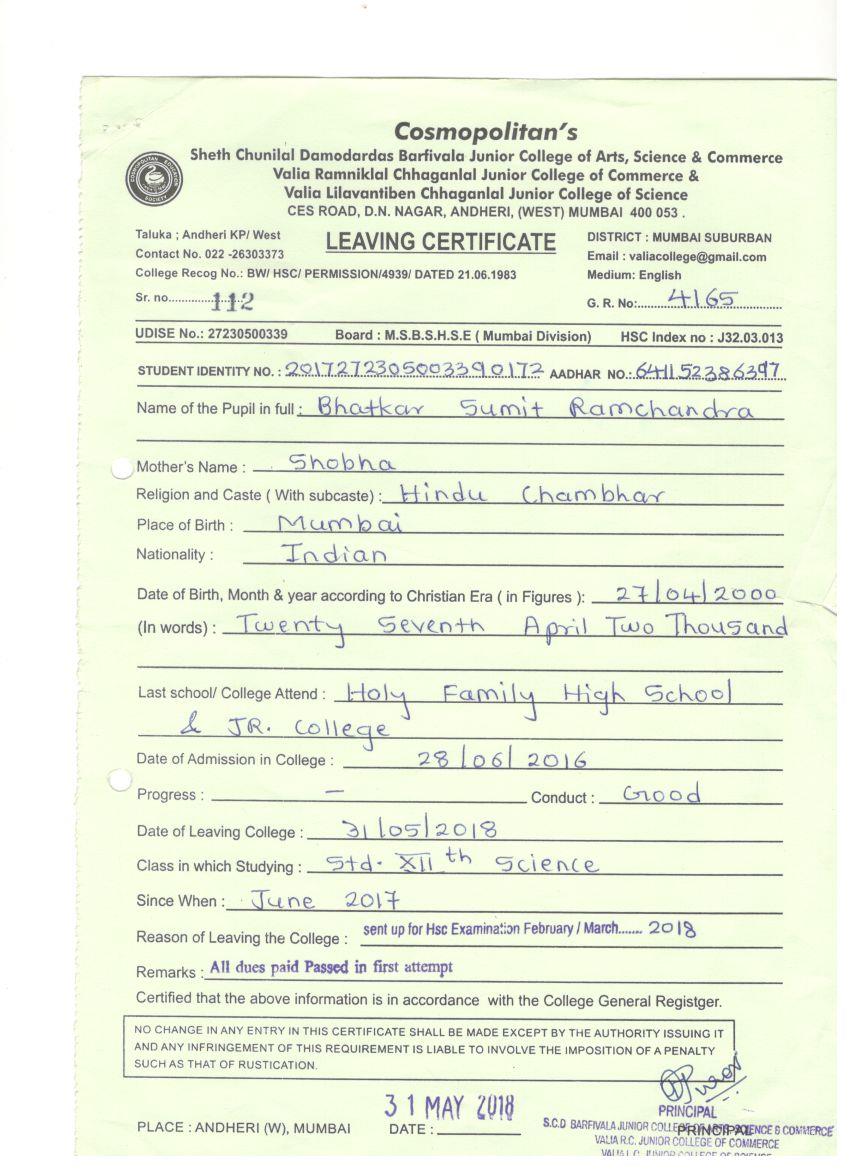 Cosmopolitan's
Sheth Chunilal Damodardas Barfivala Junior College of Arts, Science & Commerce
Valia Ramniklal Chhaganlal Junior College of Commerce &
Valia Lilavantiben Chhaganlal Junior College of Science
CES ROAD, D.N. NAGAR, ANDHERI, (WEST) MUMBAI 400 053 .
COSMOPOLITAN EDUCATION SOCIETY
Taluka ; Andheri KP/ West
LEAVING CERTIFICATE
DISTRICT : MUMBAI SUBURBAN
Contact No. 022 -26303373
Email : valiacollege@gmail.com
College Recog No.: BW/ HSC/ PERMISSION/4939/ DATED 21.06.1983
Medium: English
Sr. no.............112
G. R. No:......4165
UDISE No.: 27230500339 Board : M.S.B.S.H.S.E ( Mumbai Division) HSC Index no : J32.03.013
STUDENT IDENTITY NO. : 2017272305003390172 AADHAR NO.: 641152386397
Name of the Pupil in full : Bhatkar Sumit Ramchandra
Mother's Name : Shobha
Religion and Caste ( With subcaste) : Hindu Chambhar
Place of Birth : Mumbai
Nationality : Indian
Date of Birth, Month & year according to Christian Era ( in Figures ): 27/04/2000
(In words) : Twenty Seventh April Two Thousand
Last school/ College Attend : Holy Family High School
& JR. College
Date of Admission in College : 28/06/2016
Progress : — Conduct : Good
Date of Leaving College : 31/05/2018
Class in which Studying : Std. XII th Science
Since When : June 2017
Reason of Leaving the College : sent up for Hsc Examination February / March....... 2018
Remarks : All dues paid Passed in first attempt
Certified that the above information is in accordance with the College General Registger.
NO CHANGE IN ANY ENTRY IN THIS CERTIFICATE SHALL BE MADE EXCEPT BY THE AUTHORITY ISSUING IT
AND ANY INFRINGEMENT OF THIS REQUIREMENT IS LIABLE TO INVOLVE THE IMPOSITION OF A PENALTY
SUCH AS THAT OF RUSTICATION.
PLACE : ANDHERI (W), MUMBAI
DATE : 31 MAY 2018
PRINCIPAL
PRINCIPAL
S.C.D BARFIVALA JUNIOR COLLEGE OF ARTS, SCIENCE & COMMERCE
VALIA R.C. JUNIOR COLLEGE OF COMMERCE
VALIA L.C. JUNIOR COLLEGE OF SCIENCE